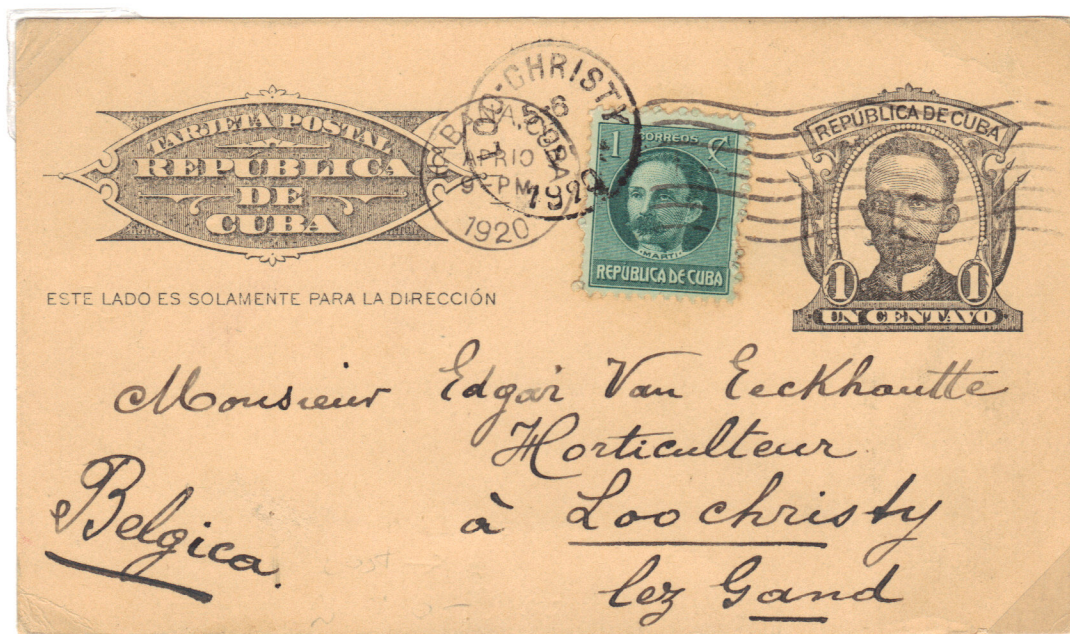 TARJETA POSTAL
REPÚBLICA
DE
CUBA
HABANA, CUBA
APR 10
9-PM
1920
LOO-CHRISTY
6
1920
1 CORREOS ¢
MARTI
REPÚBLICA DE CUBA
REPUBLICA DE CUBA
1 1
UN CENTAVO
ESTE LADO ES SOLAMENTE PARA LA DIRECCIÓN
Monsieur Edgar Van Eeckhoutte
Horticulteur
à Loochristy
lez Gand
Belgica.